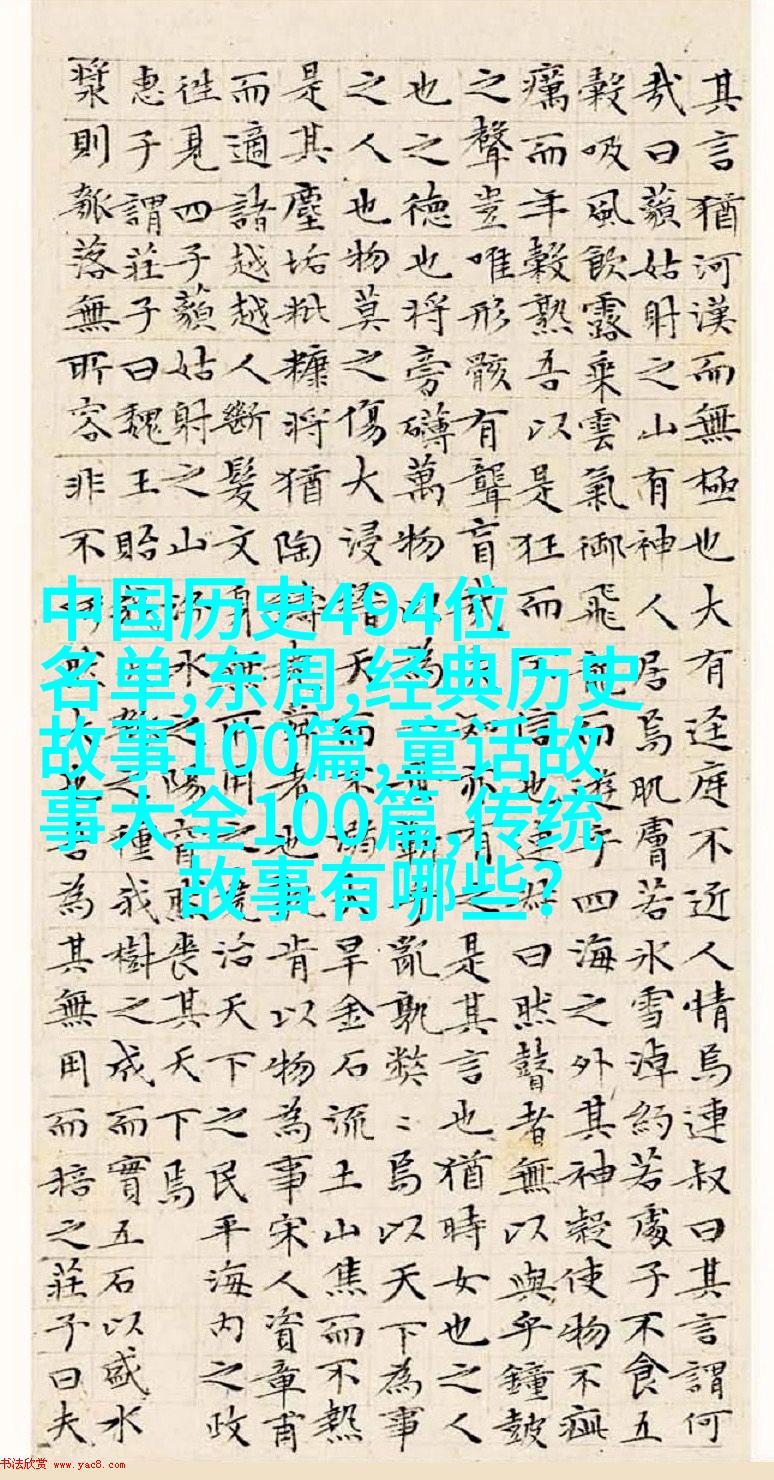 其言猶河漢而無極也大有逕庭不近人情焉連叔曰其言謂何
哉曰藐姑射之山有神人居焉肌膚若氷雪淖約若處子不食五
穀吸風飲露乗雲氣御飛龍而遊乎四海之外其神凝使物不疵
癘而年穀熟吾以是狂而不信也連叔曰然瞽者無以與乎鐘皷
之聲豈唯形骸有聾盲哉夫知亦有之是其言也猶時女也之人
也之德也将旁礴萬物以為一世蘄乎亂孰弊〻焉以天下為事
之人也物莫之傷大浸稽天而不溺大旱金石流土山焦而不熱
是其塵垢粃糠将猶陶鑄堯舜者也孰肯以物為事宋人資章甫
而適諸越越人斷髮文身無所用之堯治天下之民平海内之政
徃見四子藐姑射之山汾水之陽窅然喪其天下焉
惠子謂莊子曰魏王貽我大瓠之種我樹之成而實五石以盛水
漿則瓠落無所容非不呺然大也吾為其無用而掊之莊子曰夫
中国历史494位
名单,东周,经典历史
故事100篇,童话故
事大全100篇,传统
故事有哪些?
书法欣赏 www.yac8.com